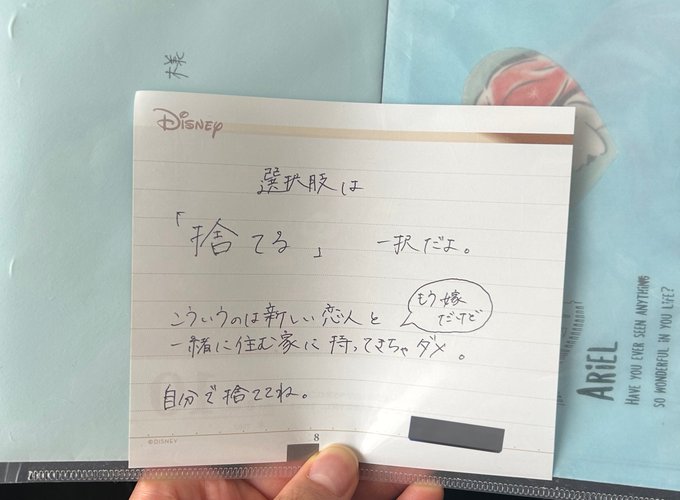 様
DISNEY
選択肢は
「捨てる」 一択だよ。
もう嫁
だけど
こういうのは新しい恋人と
一緒に住む家に持ってきちゃダメ。
自分で捨ててね。
©DISNEY
8
ARIEL
HAVE YOU EVER SEEN ANYTHING
SO WONDERFUL IN YOU LIFE?